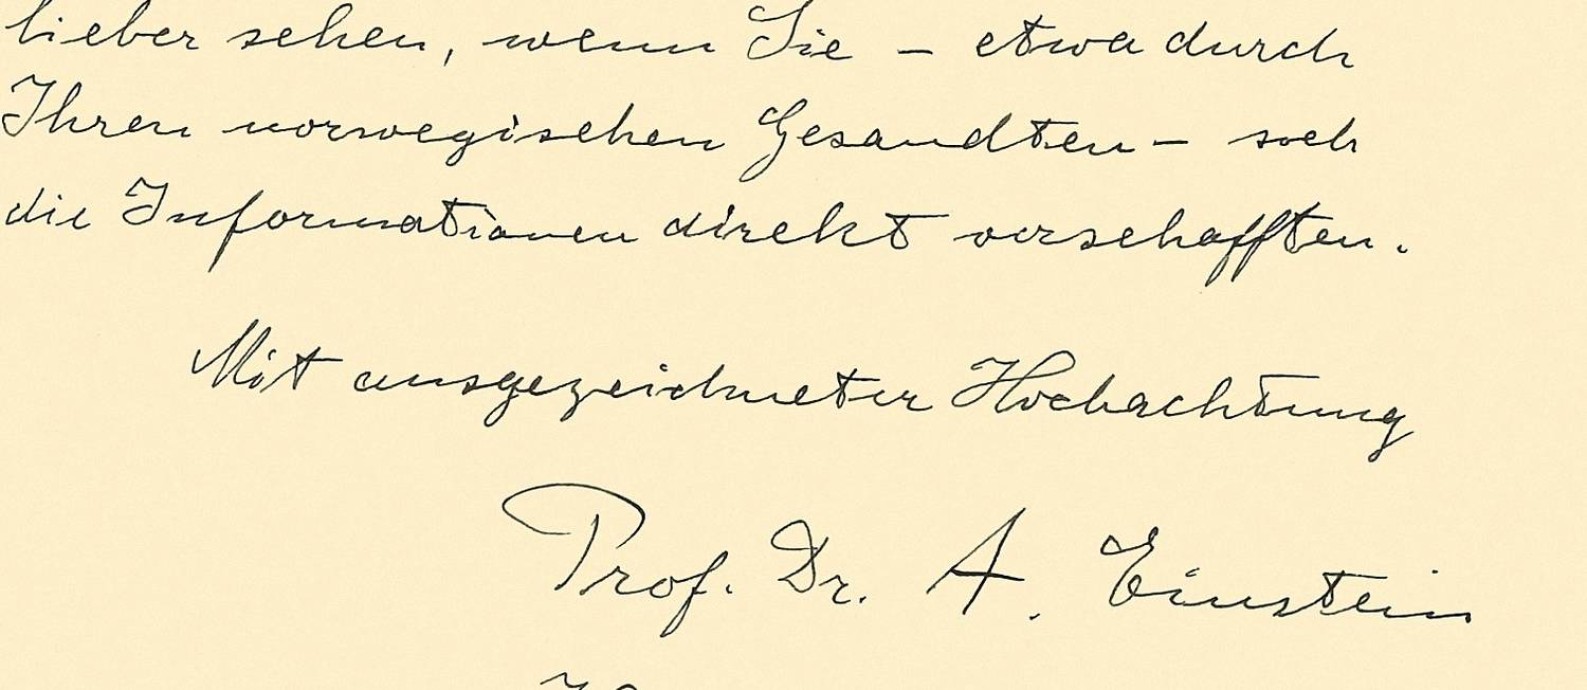 lieber sehen, wenn Sie – etwa durch
Ihren norwegischen Gesandten – sich
die Informationen direkt verschafften.
Mit ausgezeichneter Hochachtung
Prof. Dr. A. Einstein